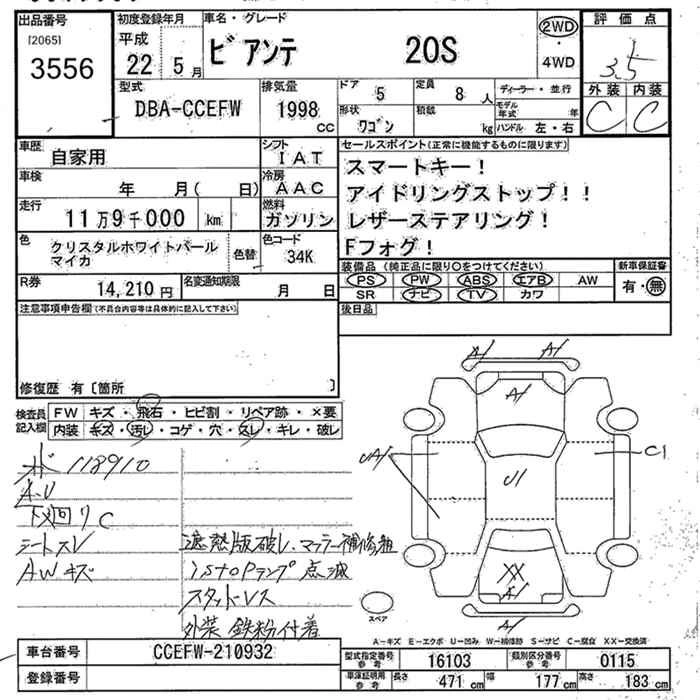 出品番号 初度登録年月 車名・グレード 2WD 評価点
[2065] 平成
3556 22 5月 ビアンテ 20S ・ 3.5
4WD
型式 排気量 ドア 5 定員 8人 ディーラー・並行 外装 内装
DBA-CCEFW 1998cc 形状 ワゴン 積載 kg モデル年式 年 C C
ハンドル 左・右
車歴 自家用 シフト IAT セールスポイント(正常に機能するものに限ります)
車検 年 月( 日) 冷房 AAC スマートキー!
走行 11万9千000 km 燃料 ガソリン アイドリングストップ!!
レザーステアリング!
色 クリスタルホワイトパール 色替 色コード Fフォグ!
マイカ 34K
装備品(純正品に限り○をつけてください) 新車保証書
R券 14,210円 名変通知期限 月 日 PS PW ABS エアB AW 有・無
SR ナビ TV カワ
注意事項申告欄(不具合内容等は具体的に記入して下さい) 後日品
修復歴 有[箇所 ]
検査員 FW キズ・飛石・ヒビ割・リペア跡・×要
記入欄 内装 キズ・汚し・コゲ・穴・スレ・キレ・破レ
A/ A/
A/
UA/ U/ C1
118910
A・U
下廻りC
シートスレ 遮熱版破レ、マフラー補修組
AWキズ istopランプ点滅
スタッドレス
外装 鉄粉付着
XX
A/
A/
スペア
A-キズ E-エクボ U-凹み W-補修跡 S-サビ C-腐食 XX-交換済
車台番号 CCEFW-210932 型式指定番号 参考 16103 類別区分番号 参考 0115
登録番号 車庫証明用 参考 長さ 471cm 幅 177cm 高さ 183cm